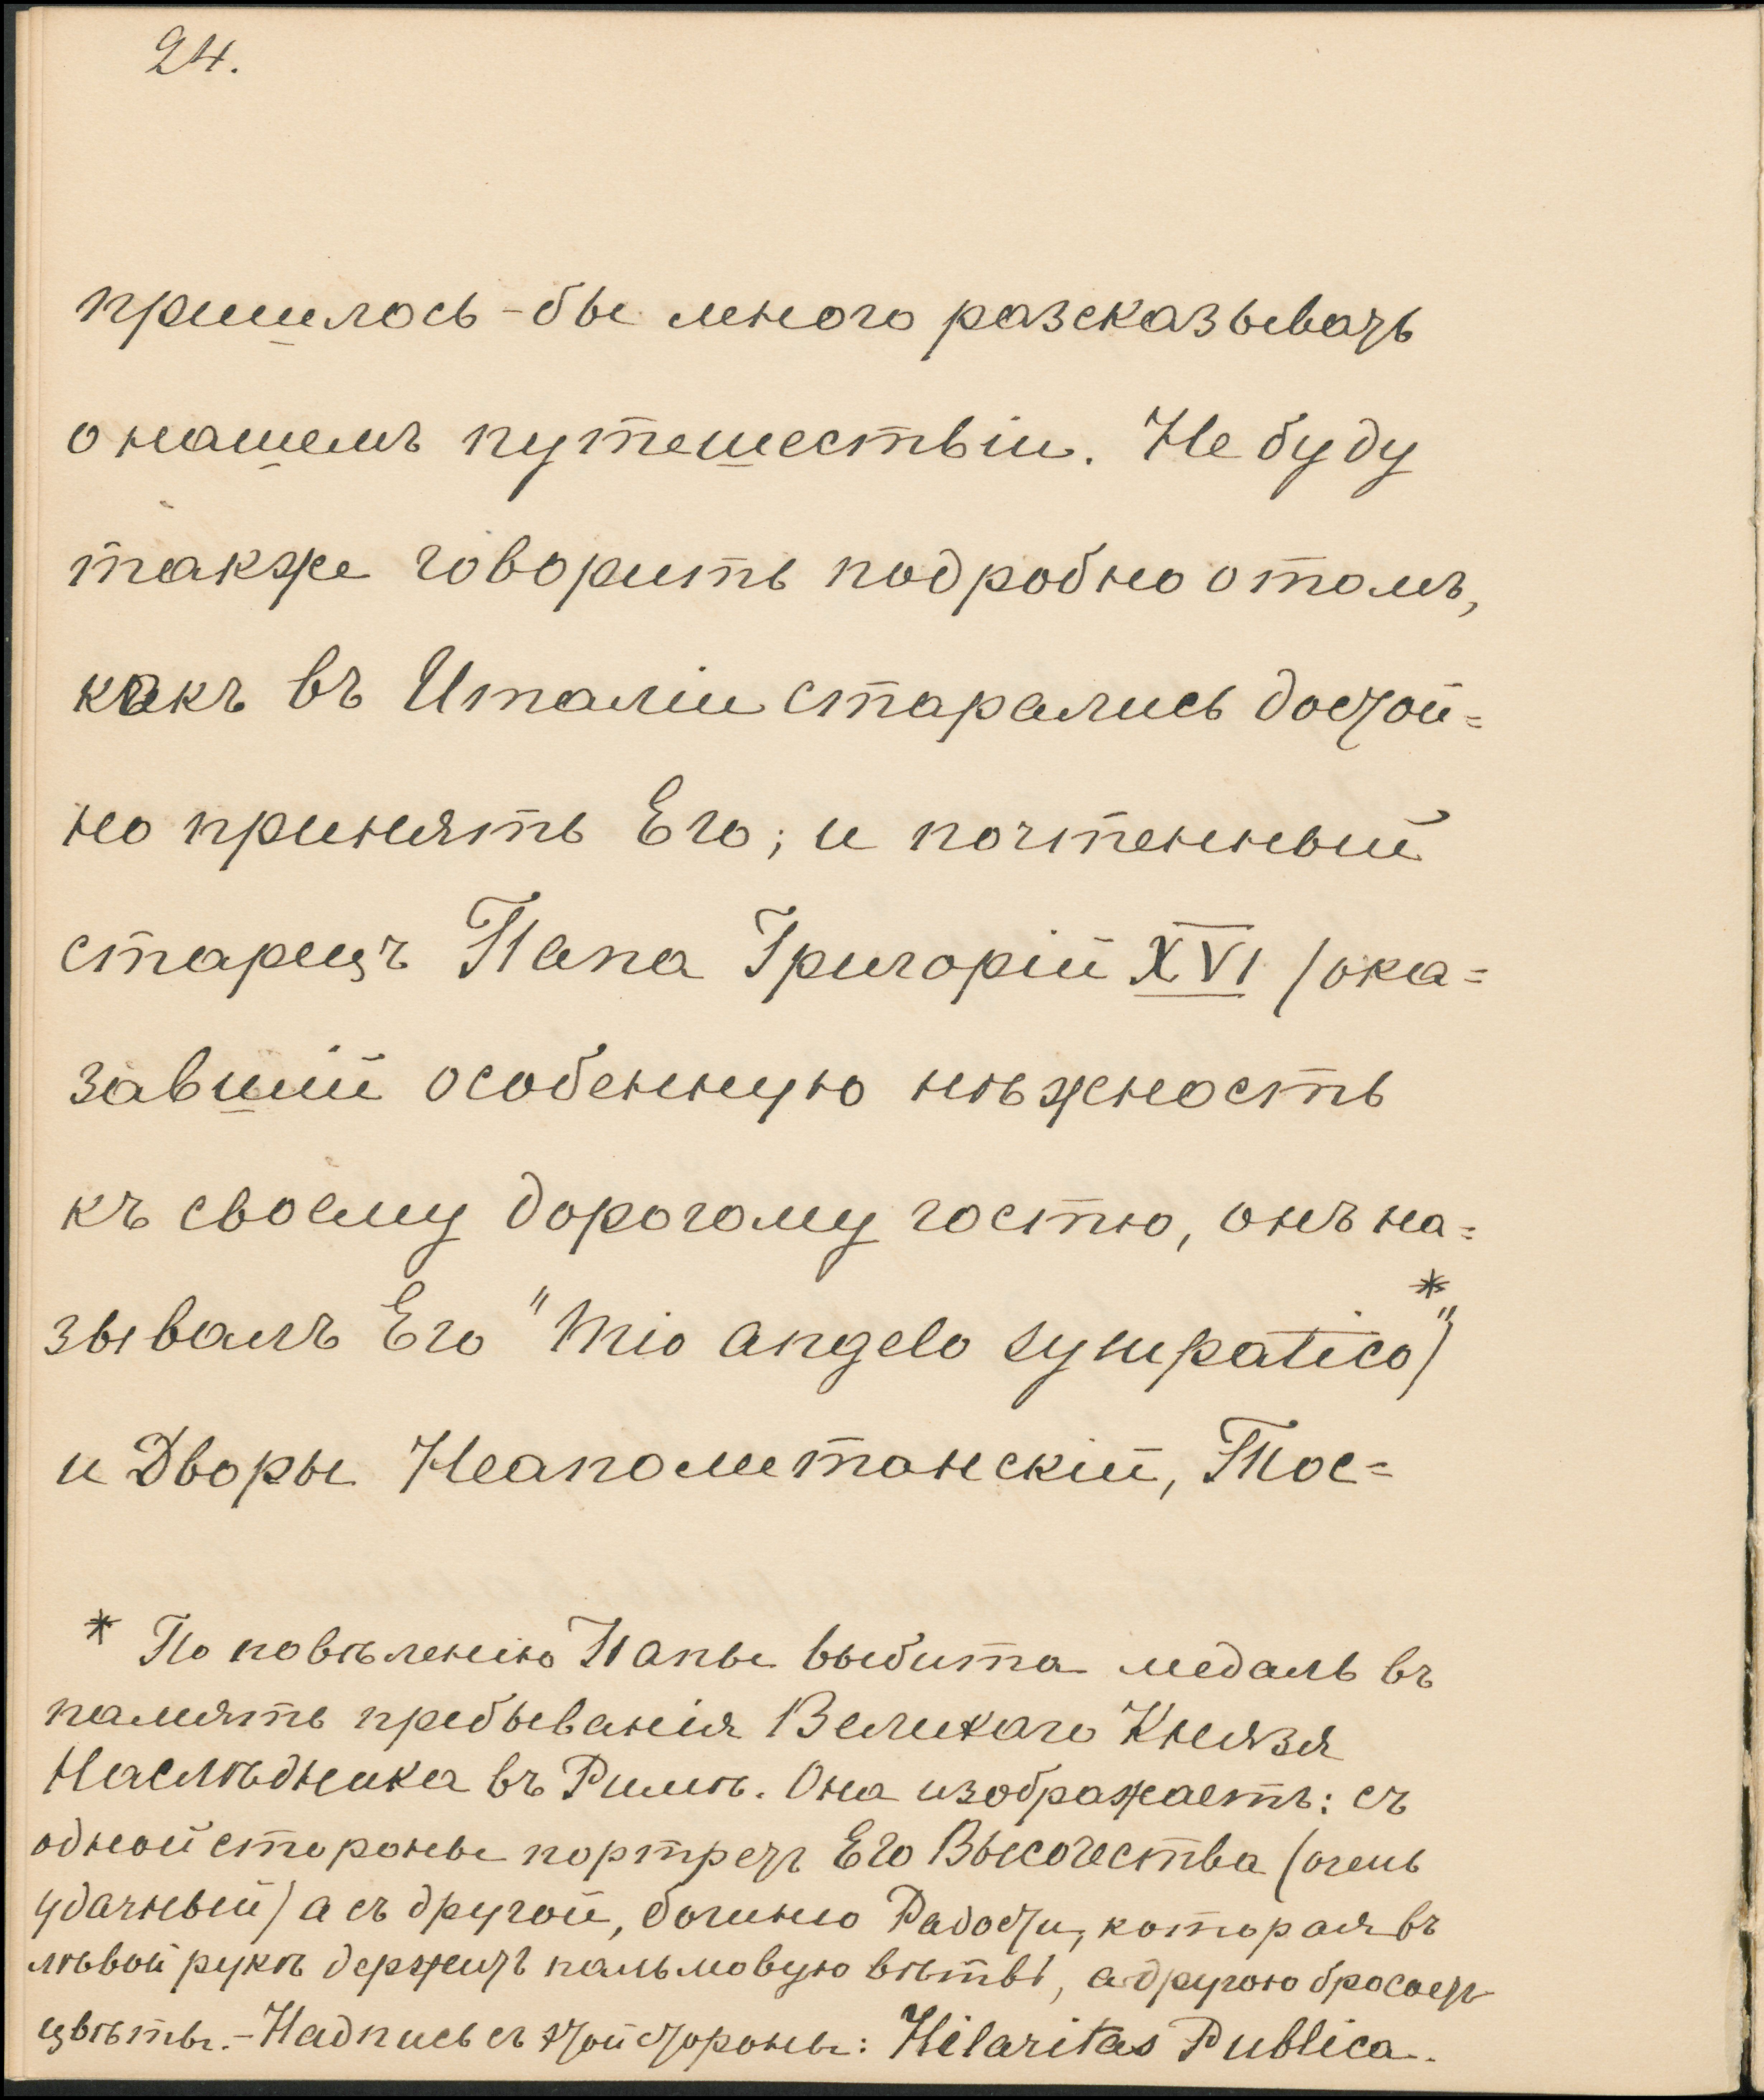 24.
пришлось-бы много разсказывать
о нашемъ путешествіи. Не буду
также говорить подробно о томъ,
какъ въ Италіи старались достой=
но принять Его; и почтенный
старецъ Папа Григорій XVI (ока=
завшій особенную нѣжность
къ своему дорогому гостю, онъ на=
зывалъ Его "mio angelo sympatico"*)
и Дворы Неаполитанскій, Тос=
* По повѣленію Папы выбита медаль въ
память пребыванія Великаго Князя
Наслѣдника въ Римѣ. Она изображаетъ: съ
одной стороны портретъ Его Высочества (очень
удачный) а съ другой, богиню Радости, которая въ
лѣвой рукѣ держитъ пальмовую вѣтвь, а другою бросаетъ
цвѣты. - Надпись съ этой стороны: Hilaritas Publica.